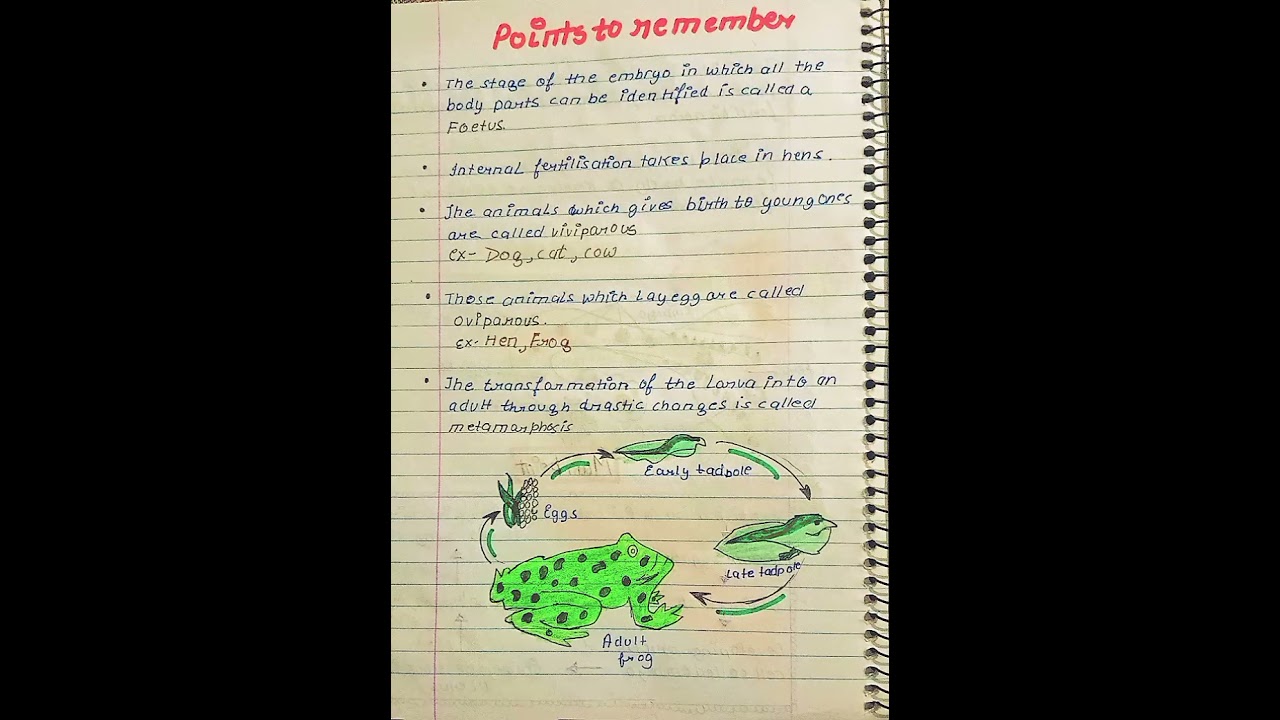 Points to remember
• The stage of the embryo in which all the
body parts can be identified is called a
Foetus.
• Internal fertilisation takes place in hens.
• The animals which gives birth to young ones
are called viviparous
ex- Dog, cat, cow
• Those animals which lay egg are called
oviparous.
ex- Hen, Frog
• The transformation of the Larva into an
adult through drastic changes is called
metamorphosis
Early tadpole
Eggs
Late tadpole
Adult
frog